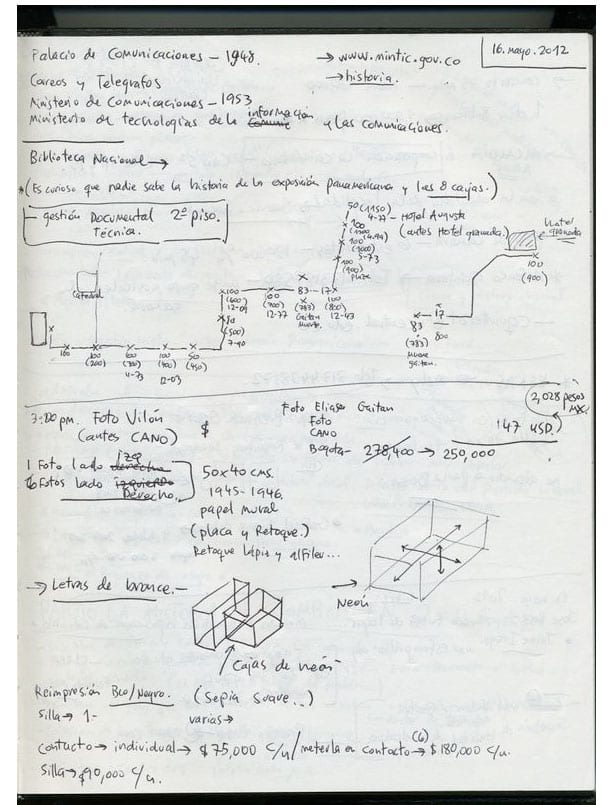 16. mayo. 2012
Palacio de Comunicaciones – 1948.
→ www.mintic.gov.co
→ historia.
Correos y Telegrafos
Ministerio de Comunicaciones – 1953
Ministerio de tecnologías de la información y las comunicaciones.
Biblioteca Nacional →
*(Es curioso que nadie sabe la historia de la exposición panamericana y las 8 cajas.)
– gestión Documental 2º piso.
Técnica.
50 (1150)
4-77 – Hotel Augusta
(antes Hotel granada.)
100
100
(1000)
5-73
100
(900)
plaza
Hotel granada
100
(900)
Catedral
100
(600)
12-09
100
(700)
12-77
83 – 17
(783)
Gaitan
Muerto.
100
(800)
12-43
90
(500)
7-90
100
100
(200)
100
(300)
4-73
100
(400)
12-03
50
(450)
83
(783)
Muere
gaitan.
17
800
3:00 pm. Foto Vilón
(antes CANO)
$
Foto Eliaso Gaitan
Foto
CANO
Bogota – 278,400 → 250,000
147 USD.)
2,028 pesos
MX.
1 Foto lado derecha izq
6 Fotos lado izquierdo
Derecho.
50x40 cms.
1945-1946.
papel mural
(placa y Retoque.)
Retoque lapiz y alfiler...
→ Letras de bronce. –
→ Neón
Cajas de neón
Reimpresión Bco/Negro. (Sepia suave..)
silla → 1 –
varias →
contacto → individual → $75,000 c/u / meterla en contacto (6) → $180,000 c/u.
silla → $90,000 c/u.